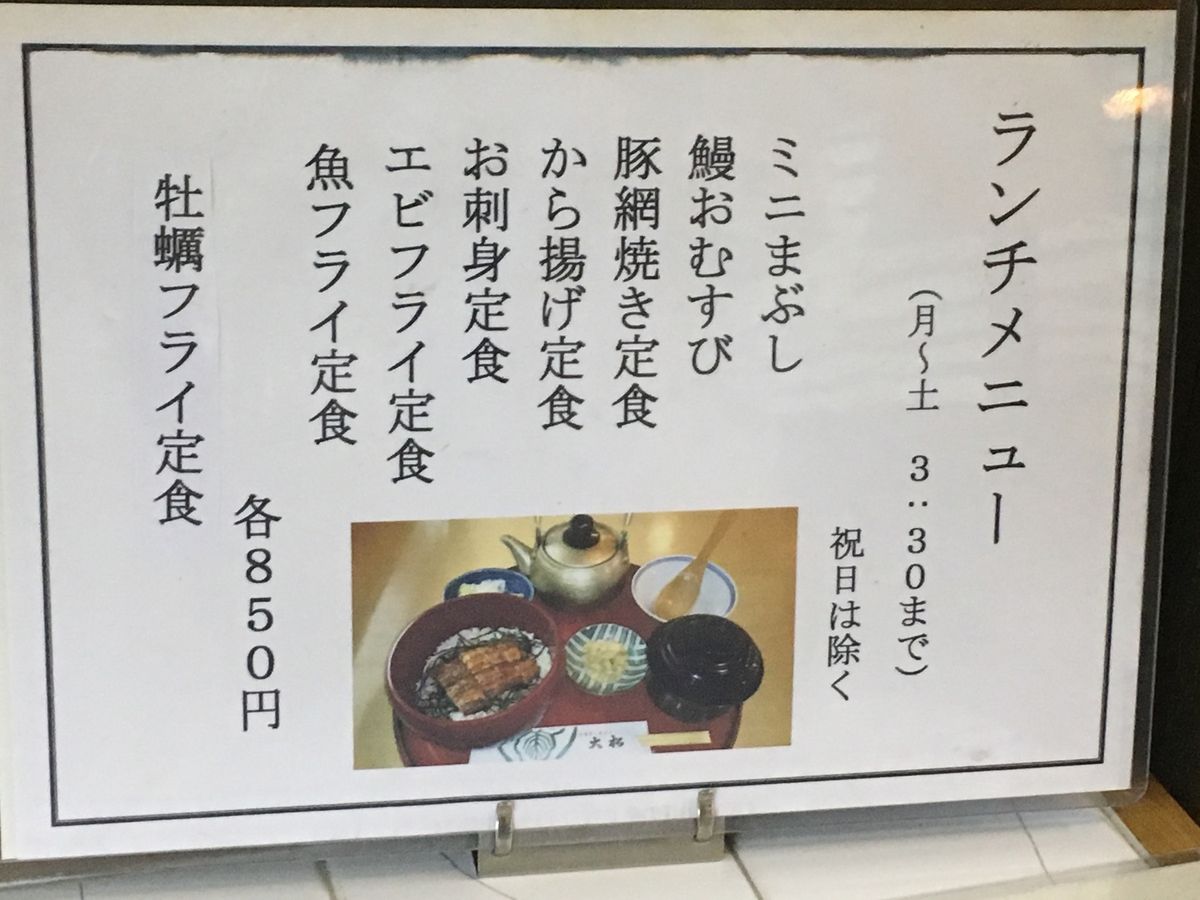 ランチメニュー
（月～土　３：３０まで）
祝日は除く
ミニまぶし
鰻おむすび
豚網焼き定食
から揚げ定食
お刺身定食
エビフライ定食
魚フライ定食
各８５０円
牡蠣フライ定食
大松